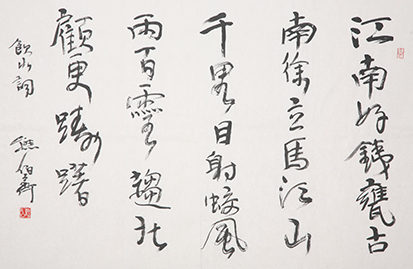 江南好鐵甕古
南徐立馬江山
千里目射蛟風
雨百靈趨北
顧更躊躇
飲水詞
熊伯齊